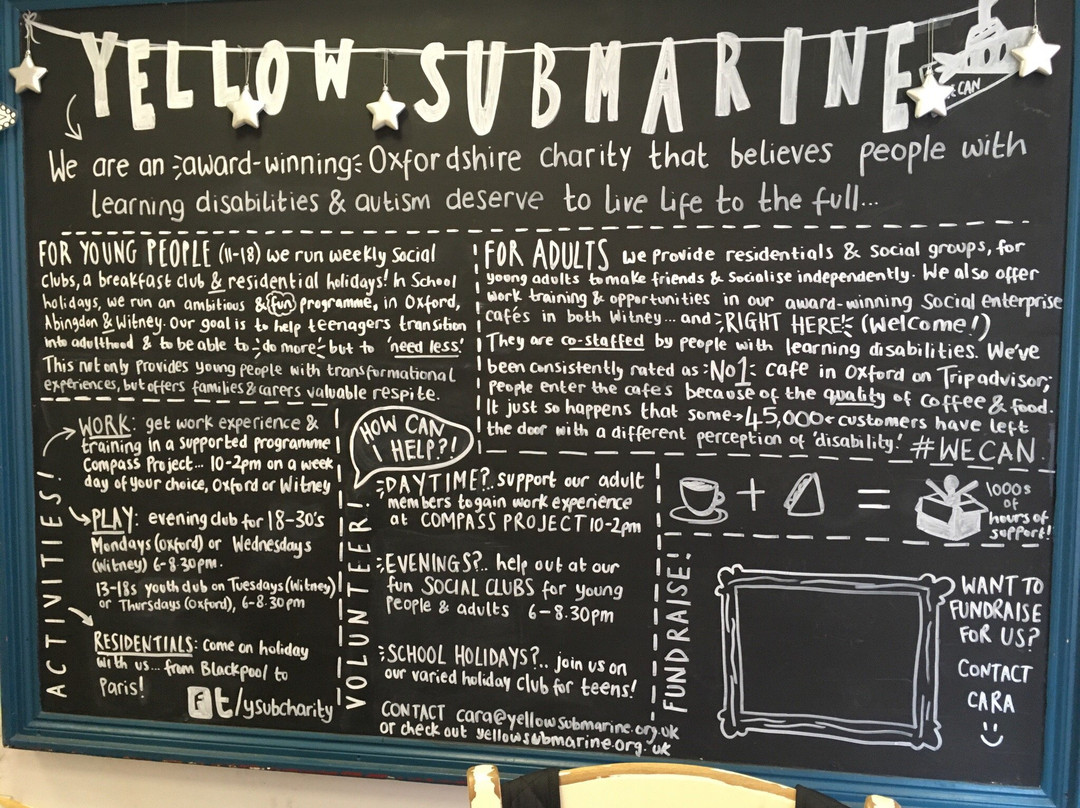 YELLOW SUBMARINE
WE CAN
We are an award-winning Oxfordshire charity that believes people with
learning disabilities & autism deserve to live life to the full...
FOR YOUNG PEOPLE (11-18) we run weekly Social
clubs, a breakfast club & residential holidays! In School
holidays, we run an ambitious & fun programme, in Oxford,
Abingdon & Witney. Our goal is to help teenagers transition
into adulthood & to be able to 'do more' but to 'need less.'
This not only provides young people with transformational
experiences, but offers families & carers valuable respite.
FOR ADULTS we provide residentials & social groups, for
young adults to make friends & socialise independently. We also offer
work training & opportunities in our award-winning Social enterprise
cafés in both Witney... and RIGHT HERE! (Welcome!)
They are co-staffed by people with learning disabilities. We've
been consistently rated as No1 cafe in Oxford on Tripadvisor;
people enter the cafés because of the quality of coffee & food.
It just so happens that some 45,000 customers have left
the door with a different perception of 'disability.' #WECAN
ACTIVITIES!
WORK: get work experience &
training in a supported programme
Compass Project... 10-2pm on a week
day of your choice, Oxford or Witney
PLAY: evening club for 18-30's
Mondays (oxford) or Wednesdays
(Witney) 6-8.30pm.
13-18s youth club on Tuesdays (Witney)
or Thursdays (Oxford), 6-8.30pm
RESIDENTIALS: come on holiday
with us... from Blackpool to
Paris!
f t/ysubcharity
HOW CAN
I HELP?!
VOLUNTEER!
DAYTIME?.. support our adult
members to gain work experience
at COMPASS PROJECT 10-2pm
EVENINGS?.. help out at our
fun SOCIAL CLUBS for young
people & adults 6-8.30pm
SCHOOL HOLIDAYS?.. join us on
our varied holiday club for teens!
CONTACT cara@yellowsubmarine.org.uk
or check out yellowsubmarine.org.uk
FUNDRAISE!
+ =
1000s
of
hours of
support!
WANT TO
FUNDRAISE
FOR US?
CONTACT
CARA